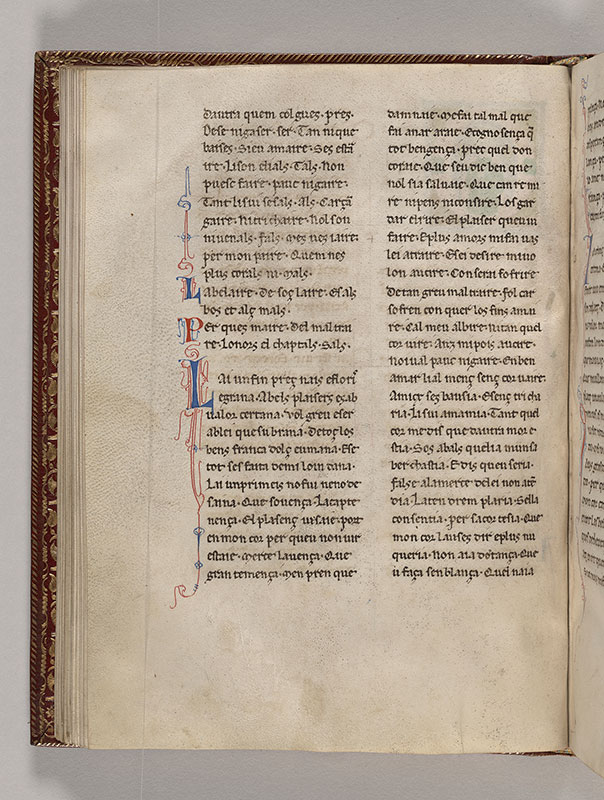 dautra quem colgues. pres.
De se nigaser. ser. Tan ni que
baises. Sieu amaire. Ses esta
ire. Lison dials. Tals. Non
puesc faire. pauc nigaire.
Tant lisui sesals. Als. Carca
gaire. Ni tri chaire. Nol son
niuenals. fals. Mes nes laire.
per mon paire. Quem nes
plus corals ni. Mals.
Labelaire. De sos laire. Esals
bos et alç mals.
Per ques maire. Del maltrai
re. Lonors el chaptals. Sals.
Lai un fin preç nais efloris
Legrana. Abels plaisers e ab
ualor certana. Vol greu eser
ablei que su brana. De toç los
bens franca dolç eumana. Esc
tot ses faita demi loin dana.
Lai inprimeis no fui ueno de
saina. Que souença. Lacapte
nença. El plasenç ursaie port
en mon cor per queu non uir
estaie. Merce lauença. Que
gran temença. Men pren que
dam naie. Mefai tal mal que
fai anar araie.Ecogno sença q̄
tot bengença. prec quel don
coraie. Que seu dic ben que
nol sia saluaie. Que can re mi
re nipens niconsire. Los gar
dar el rire. El plaiser queu ui
faire. Eplus amors mi fin uas
lei atraire. Esei desire. muo
lon aucire. Con serai so frire
De tan greu mal traire. fol car
sofren con quer los fins ama
re. Cal meu albire. Nitan quel
cor uire. Anz mi pois aucire.
noi ual pauc nigaire. En ben
amar lial menç senç cor uaire.
Amics ses bausia. Esenç tricha
ria. Li sui amamia. Tant quel
cor me dis que dautra mor e
stia. Ses abals quelia mun sa
ber chastia. Edis queu seria.
false alamerce del ei non atē
dia. Laten direm plaria. Sella
consentia. per sa cor tesia. Que
mon cor lauses dir eplus nu
queria. Non aia dotança. Que
u faça senblança. Quel naia